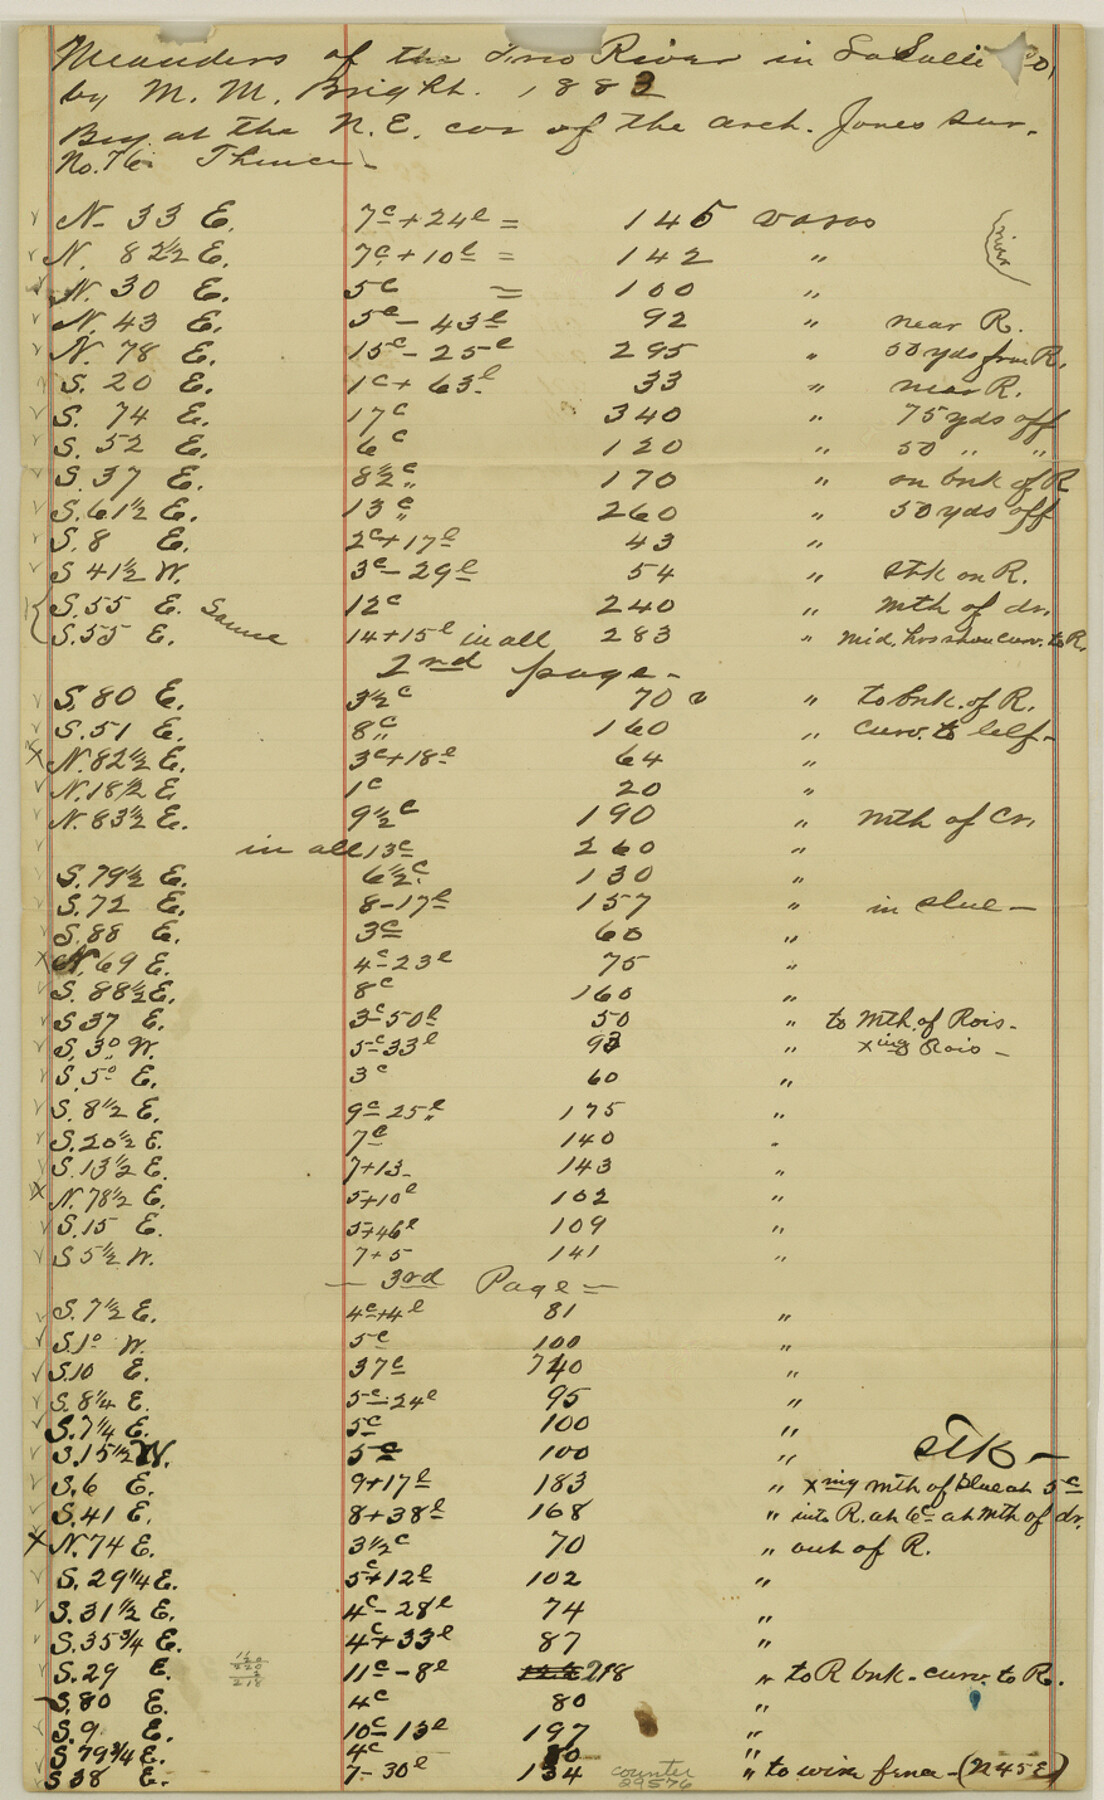 Meanders of the Frio River in LaSalle Co,
by M. M. Bright. 1882
Beg. at the N.E. cor of the Arch. Jones sur.
No. 76 Thence -
N. 33 E. 7c + 24l = 145 varas
N. 8 2½ E. 7c + 10l = 142 " river
N. 30 E. 5c = 100 "
N. 43 E. 5c - 43l 92 " near R.
N. 78 E. 15c - 25l 295 " 50 yds from R.
S. 20 E. 1c + 63l 33 " near R.
S. 74 E. 17c 340 " 75 yds off
S. 52 E. 6c 120 " 50 " "
S. 37 E. 8½c 170 " on bnk of R
S. 61½ E. 13c 260 " 50 yds off
S. 8 E. 2c + 17l 43 "
S 41½ W. 3c - 29l 54 " Stk on R.
S. 55 E. Same 12c 240 " mth of dr.
S. 55 E. 14 + 15l in all 283 " mid. hrs shou curv. to R.
2nd page -
S. 80 E. 3½c 70 v " to bnk. of R.
S. 51 E. 8c 160 " curv. to left -
x N. 82½ E. 3c + 18l 64 "
N. 18½ E 1c 20 "
N. 83½ E. 9½c 190 " mth of Cr.
in all 13c 260 "
S. 79½ E. 6½c 130 "
S. 72 E. 8 - 17l 157 " in slue -
S. 88 E. 3c 60 "
x N. 69 E. 4c - 23l 75 "
S. 88½ E. 8c 160 "
S 37 E. 3c - 50l 50 " to mth. of Rois -
S. 3° W. 5c - 33l 93 " xing Rois -
S. 5° E. 3c 60 "
S. 8½ E. 9c - 25l 175 "
S. 20½ E. 7c 140 "
S. 13½ E. 7 + 13 - 143 "
x N. 78½ E. 5 + 10l 102 "
S. 15 E. 5 + 46l 109 "
S 5½ W. 7 + 5 141 "
- 3rd Page -
S. 7½ E. 4c + 4l 81 "
S. 1° W. 5c 100 "
S. 10 E. 37c 740 "
S. 8¼ E. 5c - 24l 95 "
S. 7¼ E. 5c 100 "
S. 15½ W. 5c 100 " STK -
S. 6 E. 9 + 17l 183 " xing mth of slue at 5c
S. 41 E. 8 + 38l 168 " into R. at 6c at mth of dr.
x N. 74 E. 3½c 70 " out of R.
S. 29¼ E. 5c + 12l 102 "
S. 31½ E. 4c - 28l 74 "
S. 35¾ E. 4c + 33l 87 "
S. 29 E. 220 2 218 11c - 8l 218 " to R bnk - curv. to R.
S. 80 E. 4c 80 "
S. 9 E. 10c - 13l 197 "
S 79¾ E. 4c 80 "
S 38 E. 7 - 30l 134 " to wire fence - (N 45 E)
counter
29576